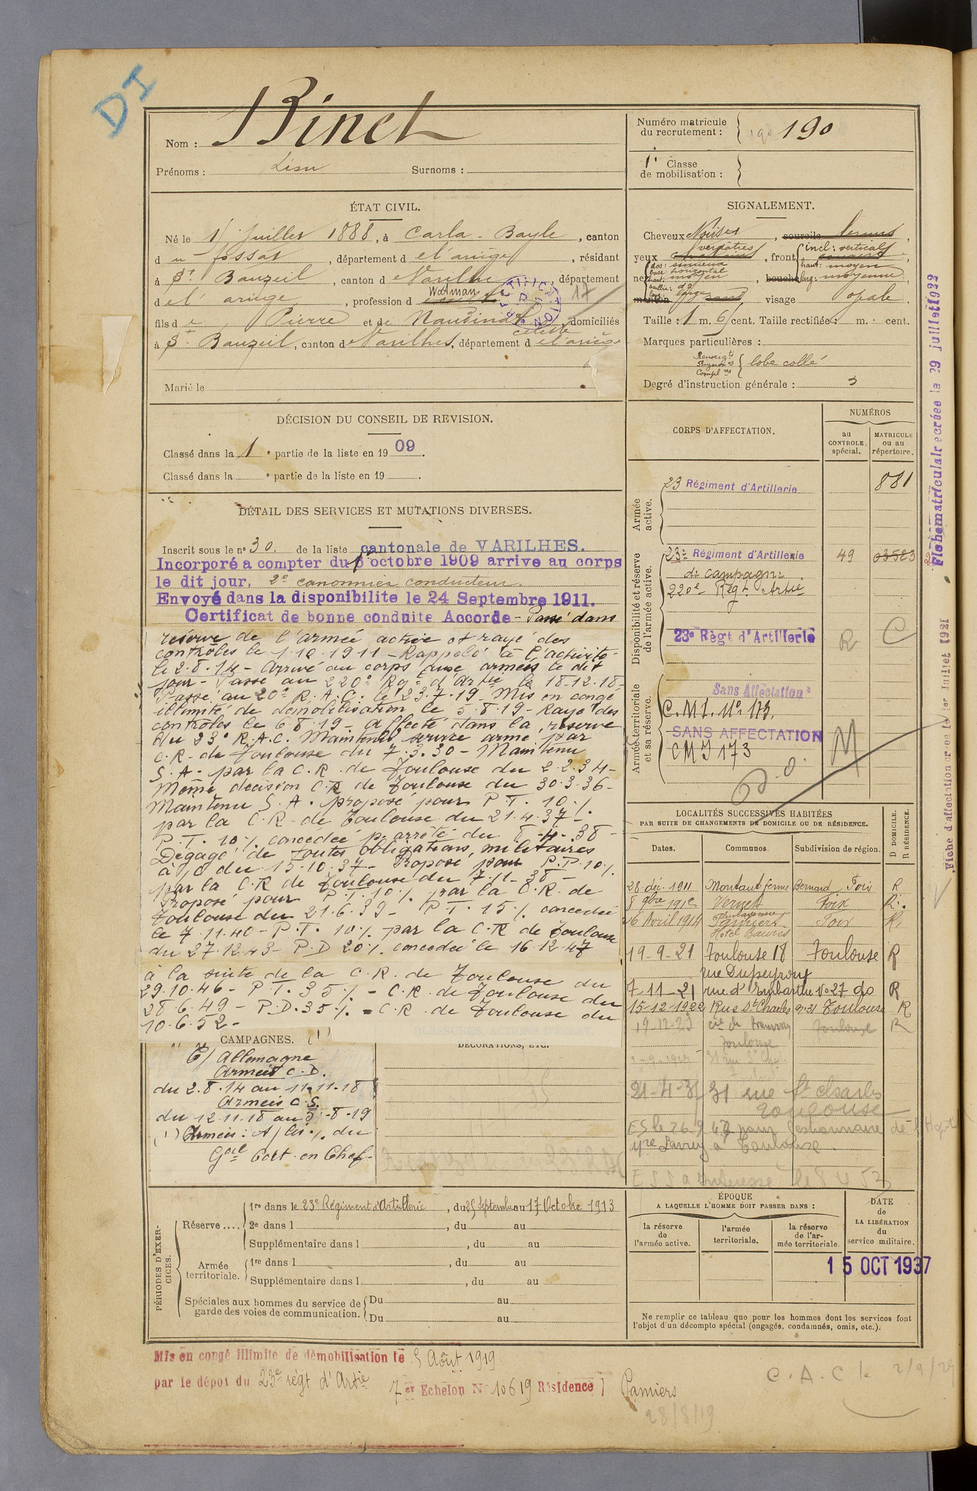 DI
Nom : Binet
Prénoms : Léon Surnoms :
Numéro matricule du recrutement : 190
1e Classe de mobilisation :
ÉTAT CIVIL.
Né le 1 Juillet 1888, à Carla-Bayle, canton
du fossat, département de l'ariège, résidant
à St Bauzeil, canton d Varilhes département
de l'ariège, profession d Wattman
fils de Pierre et de domiciliés
à St Bauzeil, canton d Varilhes, département de l'ariège
Marié le
SIGNALEMENT.
Cheveux
yeux verdâtres, front incl: verticale
haut: moyen
larg: moyenne
visage opale
Taille : 1 m. 6 cent. Taille rectifiée : m. cent.
Marques particulières :
Renseigts Physion es Compl res lobe collé
Degré d'instruction générale : 3
DÉCISION DU CONSEIL DE REVISION.
Classé dans la 1e partie de la liste en 1909.
Classé dans la e partie de la liste en 19
DÉTAIL DES SERVICES ET MUTATIONS DIVERSES.
Inscrit sous le n° 30. de la liste cantonale de VARILHES.
Incorporé a compter du 1 octobre 1909 arrive au corps
le dit jour, 2e canonnier conducteur.
Envoyé dans la disponibilite le 24 Septembre 1911.
Certificat de bonne conduite Accorde - Passé dans
réserve de l'armée active et rayé des
contrôles le 1.10.1911 - Rappelé à l'activité
le 2.8.14 - Arrivé au corps aux armées le dit
jour - Passé au 220e Rgt d'Artie le 18.12.18 -
Passé au 20e R.A.C. le 23.7.19 - Mis en congé
illimité de démobilisation le 5.8.19 - Rayé des
contrôles le 6.8.19 - Affecté dans la réserve
du 23e R.A.C. Maintenu service armé par
C.R. de Toulouse du 7.3.30 - Maintenu
S.A. par la C.R. de Toulouse du 2.2.34 -
Même décision C.R. de Toulouse du 30.3.36 -
Maintenu S.A. proposé pour P.T. 10%
par la C.R. de Toulouse du 21.4.37 -
P.T. 10% concédée par arrêté du 38 -
Dégagé de toutes obligations militaires
à/c du 15-10-37 - Proposé pour P.P. 10%
par la C.R. de Toulouse du 7.11.38 -
Proposé pour P.T. 10% par la C.R. de
Toulouse du 21.6.39 - P.T. 15% concédée
le 7.11.40 - P.T. 10% par la C.R. de Toulouse
du 27.12.43 - P.D 20% concédée le 16.12.47
à la suite de la C.R. de Toulouse du
29.10.46 - P.T. 35% - C.R. de Toulouse du
28.6.49 - P.D. 35% - C.R. de Toulouse du
10.6.52 -
CORPS D'AFFECTATION.
NUMÉROS
au CONTROLE spécial.
MATRICULE ou au répertoire.
Armée active.
23 Régiment d'Artillerie 881
Disponibilité et réserve de l'armée active.
23e Régiment d'Artillerie 49 03583
de campagne
220e Régt Artie
23e Règt d'Artillerie R C
Armée territoriale et sa réserve.
Sans Affectation
C.M.I. No 173.
SANS AFFECTATION
CMI 173
M
LOCALITÉS SUCCESSIVES HABITÉES
PAR SUITE DE CHANGEMENTS DE DOMICILE OU DE RÉSIDENCE.
Dates. Communes. Subdivision de région. D DOMICILE. R RÉSIDENCE.
28 déc. 1911 Montaut ferme Bernard Foix R
8 9bre 1912 Vernet Foix R.
26 Avril 1914 Pamiers Foix R
19-9-21 Toulouse 18 Toulouse R
rue Dupeyrou
7-11-21 rue d' No 27 do R
15-12-1922 Rue St Charles 31 Toulouse R
19-12-23 Toulouse R
Toulouse
21-4-31 31 rue St Charles
Toulouse
CAMPAGNES.
C/ Allemagne
Armées C.D.
du 2.8.14 au 11.11.18
Armées C.S.
du 12-11-18 au 5-8-19
DÉCORATIONS, ETC.
PÉRIODES D'EXERCICES.
Réserve .... 1re dans le 23e Régiment d'Artillerie, du Septembre au 17 Octobre 1913
2e dans l , du au
Supplémentaire dans l , du au
Armée territoriale. 1re dans l , du au
Supplémentaire dans l , du au
Spéciales aux hommes du service de garde des voies de communication. Du au
Du au
ÉPOQUE
A LAQUELLE L'HOMME DOIT PASSER DANS :
la réserve de l'armée active.
l'armée territoriale.
la réserve de l'armée territoriale.
DATE DE LA LIBÉRATION du service militaire.
15 OCT 1937
Ne remplir ce tableau que pour les hommes dont les services font
l'objet d'un décompte spécial (engagés, condamnés, omis, etc.).
Mis en congé illimité de démobilisation le 5 Août 1919
par le dépot du 23e régt d'Artie 7er Echelon No 10619 Résidence Pamiers
28/8/19
C.A.C le 2/9/29
Fiche matriculaire créée le 29 juillet 1932